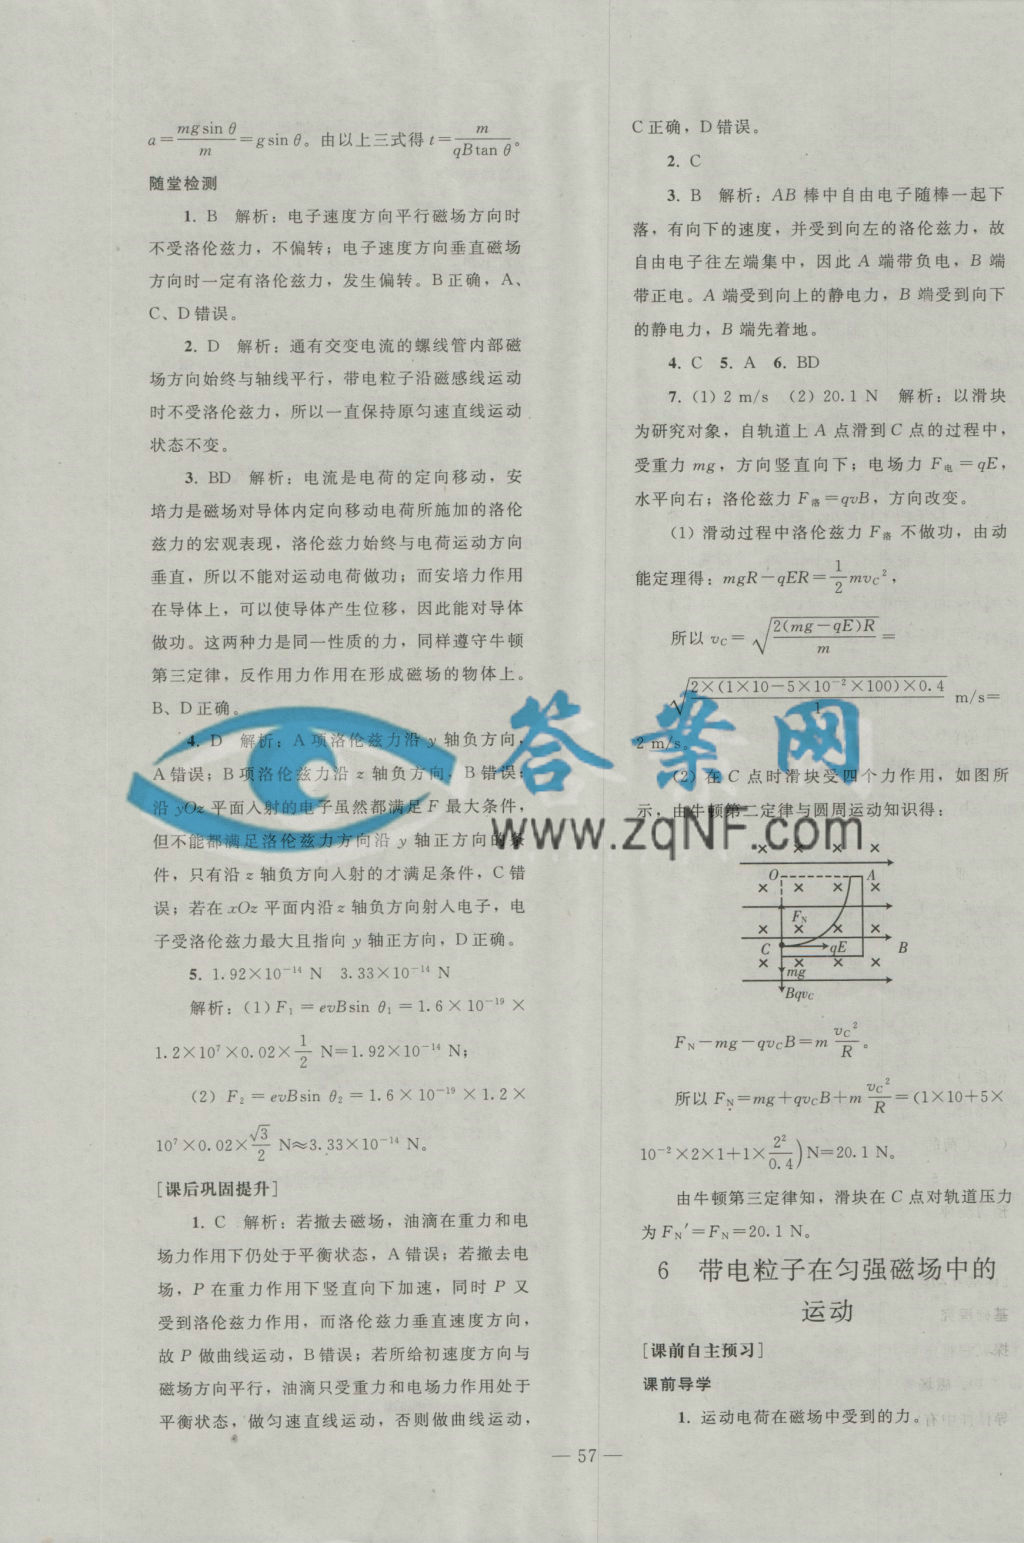 a=mgsin θ/m=gsin θ。由以上三式得 t=m/qBtan θ。
随堂检测
1. B 解析：电子速度方向平行磁场方向时
不受洛伦兹力，不偏转；电子速度方向垂直磁场
方向时一定有洛伦兹力，发生偏转。B正确，A、
C、D错误。
2. D 解析：通有交变电流的螺线管内部磁
场方向始终与轴线平行，带电粒子沿磁感线运动
时不受洛伦兹力，所以一直保持原匀速直线运动
状态不变。
3. BD 解析：电流是电荷的定向移动，安
培力是磁场对导体内定向移动电荷所施加的洛伦
兹力的宏观表现，洛伦兹力始终与电荷运动方向
垂直，所以不能对运动电荷做功；而安培力作用
在导体上，可以使导体产生位移，因此能对导体
做功。这两种力是同一性质的力，同样遵守牛顿
第三定律，反作用力作用在形成磁场的物体上。
B、D正确。
4. D 解析：A项洛伦兹力沿 y 轴负方向，
A错误；B项洛伦兹力沿 z 轴负方向，B错误；
沿 yOz 平面入射的电子虽然都满足 F 最大条件，
但不能都满足洛伦兹力方向沿 y 轴正方向的条
件，只有沿 z 轴负方向入射的才满足条件，C错
误；若在 xOz 平面内沿 z 轴负方向射入电子，电
子受洛伦兹力最大且指向 y 轴正方向，D正确。
5. 1.92×10⁻¹⁴ N 3.33×10⁻¹⁴ N
解析：(1)F₁=evBsin θ₁=1.6×10⁻¹⁹×
1.2×10⁷×0.02×1/2 N=1.92×10⁻¹⁴ N；
(2) F₂=evBsin θ₂=1.6×10⁻¹⁹×1.2×
10⁷×0.02×√3/2 N≈3.33×10⁻¹⁴ N。
[课后巩固提升]
1. C 解析：若撤去磁场，油滴在重力和电
场力作用下仍处于平衡状态，A错误；若撤去电
场，P在重力作用下竖直向下加速，同时 P 又
受到洛伦兹力作用，而洛伦兹力垂直速度方向，
故 P 做曲线运动，B错误；若所给初速度方向与
磁场方向平行，油滴只受重力和电场力作用处于
平衡状态，做匀速直线运动，否则做曲线运动，
C正确，D错误。
2. C
3. B 解析：AB 棒中自由电子随棒一起下
落，有向下的速度，并受到向左的洛伦兹力，故
自由电子往左端集中，因此 A 端带负电，B 端
带正电。A 端受到向上的静电力，B 端受到向下
的静电力，B 端先着地。
4. C 5. A 6. BD
7. (1) 2 m/s (2) 20.1 N 解析：以滑块
为研究对象，自轨道上 A 点滑到 C 点的过程中，
受重力 mg，方向竖直向下；电场力 F电=qE，
水平向右；洛伦兹力 F洛=qvB，方向改变。
(1)滑动过程中洛伦兹力 F洛 不做功，由动
能定理得：mgR-qER=1/2mvC²，
所以 vC=√(2(mg-qE)R/m)=
√(2×(1×10-5×10⁻²×100)×0.4/1) m/s=
2 m/s。
(2)在 C 点时滑块受四个力作用，如图所
示，由牛顿第二定律与圆周运动知识得：
× × × ×
O A
× × × ×
FN
× × × ×
C qE B
× × × ×
mg
BqvC
FN-mg-qvCB=m vC²/R。
所以 FN=mg+qvCB+m vC²/R=(1×10+5×
10⁻²×2×1+1×2²/0.4)N=20.1 N。
由牛顿第三定律知，滑块在 C 点对轨道压力
为 FN′=FN=20.1 N。
6 带电粒子在匀强磁场中的
运动
[课前自主预习]
课前导学
1. 运动电荷在磁场中受到的力。
— 57 —
答案网
www.zqNF.com